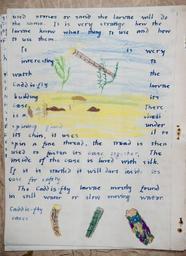 used stones or sand the larvae will do
the same. It is very strange how the
larvae know what they to use and how
to use them.
It is very
interesting to
watch the
Caddis-fly larvae
building its
case. There
is a shell
spinning under
its chin, it uses it to
spin a fine thread, the thread is then
used to fasten its case together. The
inside of the case is lined with silk.
If it is startled it will dart inside its
case for safety.
The Caddis-fly larvae mostly found
in still water or slow moving water.
Caddis-fly
cases